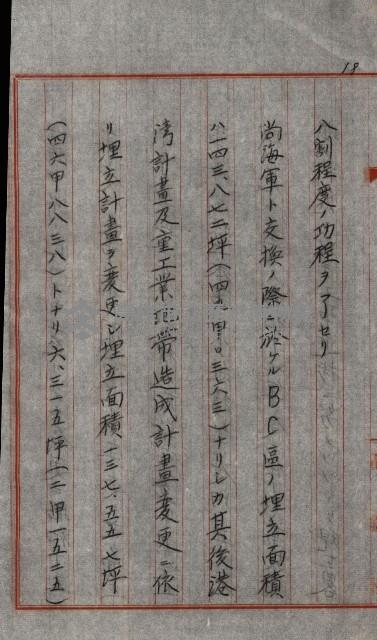 18
八割程度ノ功程ヲ了セリ
尚海軍ト交換ノ際ニ於ケルBC區ノ埋立面積
ハ一四三、八七二坪(四九甲〇三六三)ナリシカ其後港
湾計畫及重工業地帶造成計畫変更ニ依
リ埋立計畫ヲ変更シ埋立面積一三七、五五七坪
(四六甲八八三八)トナリ六、三一五坪(二甲一五二五)